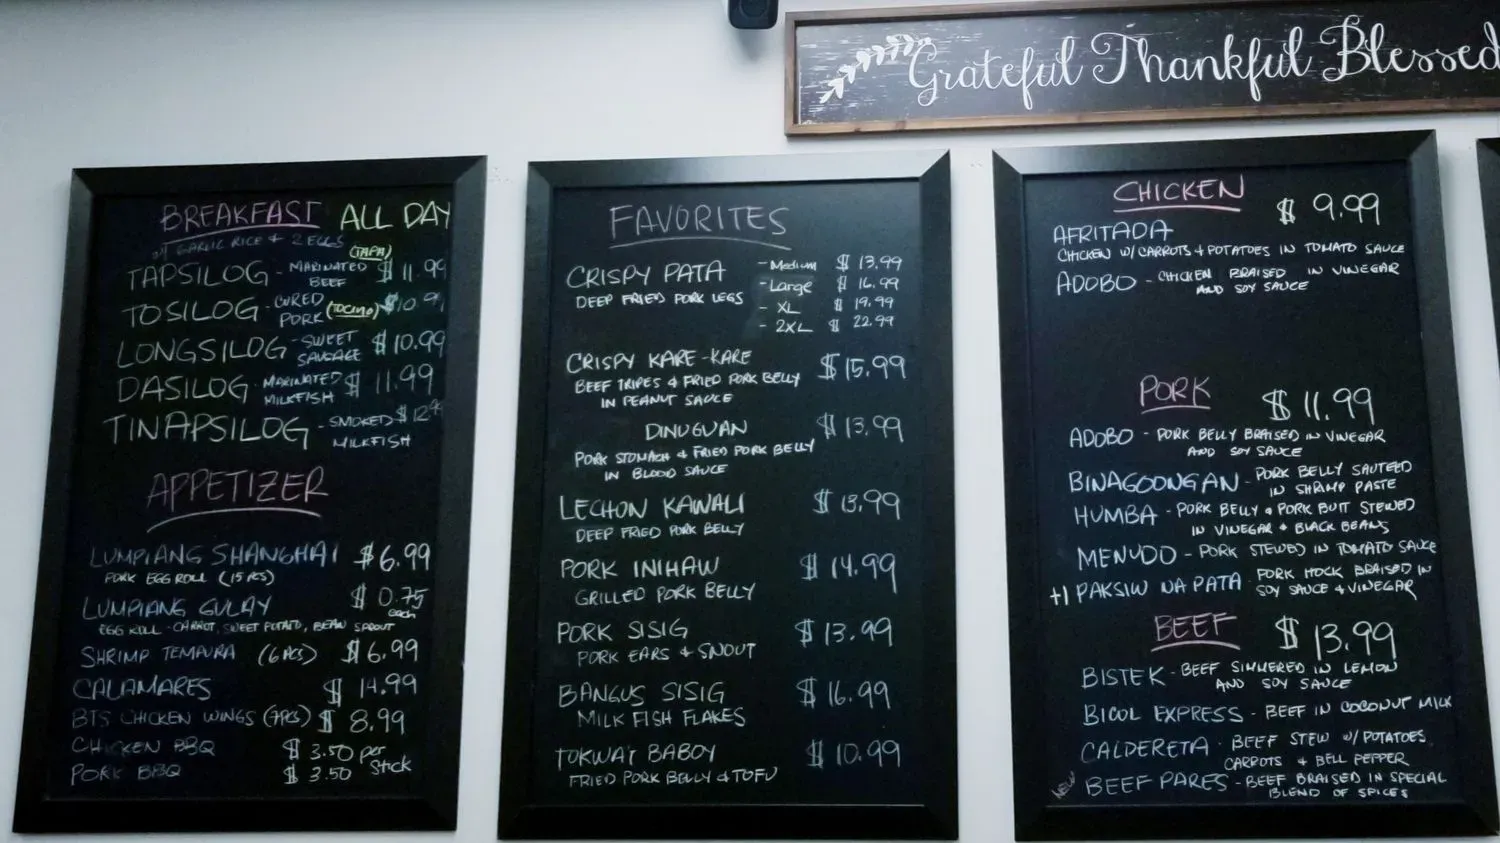 Grateful Thankful Blessed
BREAKFAST ALL DAY
W/ GARLIC RICE & 2 EGGS
TAPSILOG - MARINATED BEEF (TAPA) $ 11.99
TOSILOG - CURED PORK (TOCINO) $10.99
LONGSILOG - SWEET SAUSAGE $10.99
DASILOG - MARINATED MILKFISH $ 11.99
TINAPSILOG - SMOKED MILKFISH $ 12.99
APPETIZER
LUMPIANG SHANGHAI $6.99
PORK EGG ROLL (15 PCS)
LUMPIANG GULAY $ 0.75 each
EGG ROLL - CARROT, SWEET POTATO, BEAN SPROUT
SHRIMP TEMPURA (6 PCS) $6.99
CALAMARES $ 14.99
BTS CHICKEN WINGS (7PCS) $ 8.99
CHICKEN BBQ $ 3.50 per
PORK BBQ $ 3.50 Stick
FAVORITES
CRISPY PATA - Medium $ 13.99
DEEP FRIED PORK LEGS - Large $ 16.99
- XL $ 19.99
- 2XL $ 22.99
CRISPY KARE-KARE $15.99
BEEF TRIPES & FRIED PORK BELLY
IN PEANUT SAUCE
DINUGUAN $13.99
PORK STOMACH & FRIED PORK BELLY
IN BLOOD SAUCE
LECHON KAWALI $ 13.99
DEEP FRIED PORK BELLY
PORK INIHAW $ 14.99
GRILLED PORK BELLY
PORK SISIG $ 13.99
PORK EARS & SNOUT
BANGUS SISIG $ 16.99
MILK FISH FLAKES
TOKWA'T BABOY $ 10.99
FRIED PORK BELLY & TOFU
CHICKEN $ 9.99
AFRITADA
CHICKEN W/ CARROTS & POTATOES IN TOMATO SAUCE
ADOBO - CHICKEN BRAISED IN VINEGAR
AND SOY SAUCE
PORK $ 11.99
ADOBO - PORK BELLY BRAISED IN VINEGAR
AND SOY SAUCE
BINAGOONGAN - PORK BELLY SAUTEED
IN SHRIMP PASTE
HUMBA - PORK BELLY & PORK BUTT STEWED
IN VINEGAR & BLACK BEANS
MENUDO - PORK STEWED IN TOMATO SAUCE
+1 PAKSIW NA PATA - PORK HOCK BRAISED IN
SOY SAUCE & VINEGAR
BEEF $ 13.99
BISTEK - BEEF SIMMERED IN LEMON
AND SOY SAUCE
BICOL EXPRESS - BEEF IN COCONUT MILK
CALDERETA - BEEF STEW W/ POTATOES,
CARROTS & BELL PEPPER
NEW BEEF PARES - BEEF BRAISED IN SPECIAL
BLEND OF SPICES